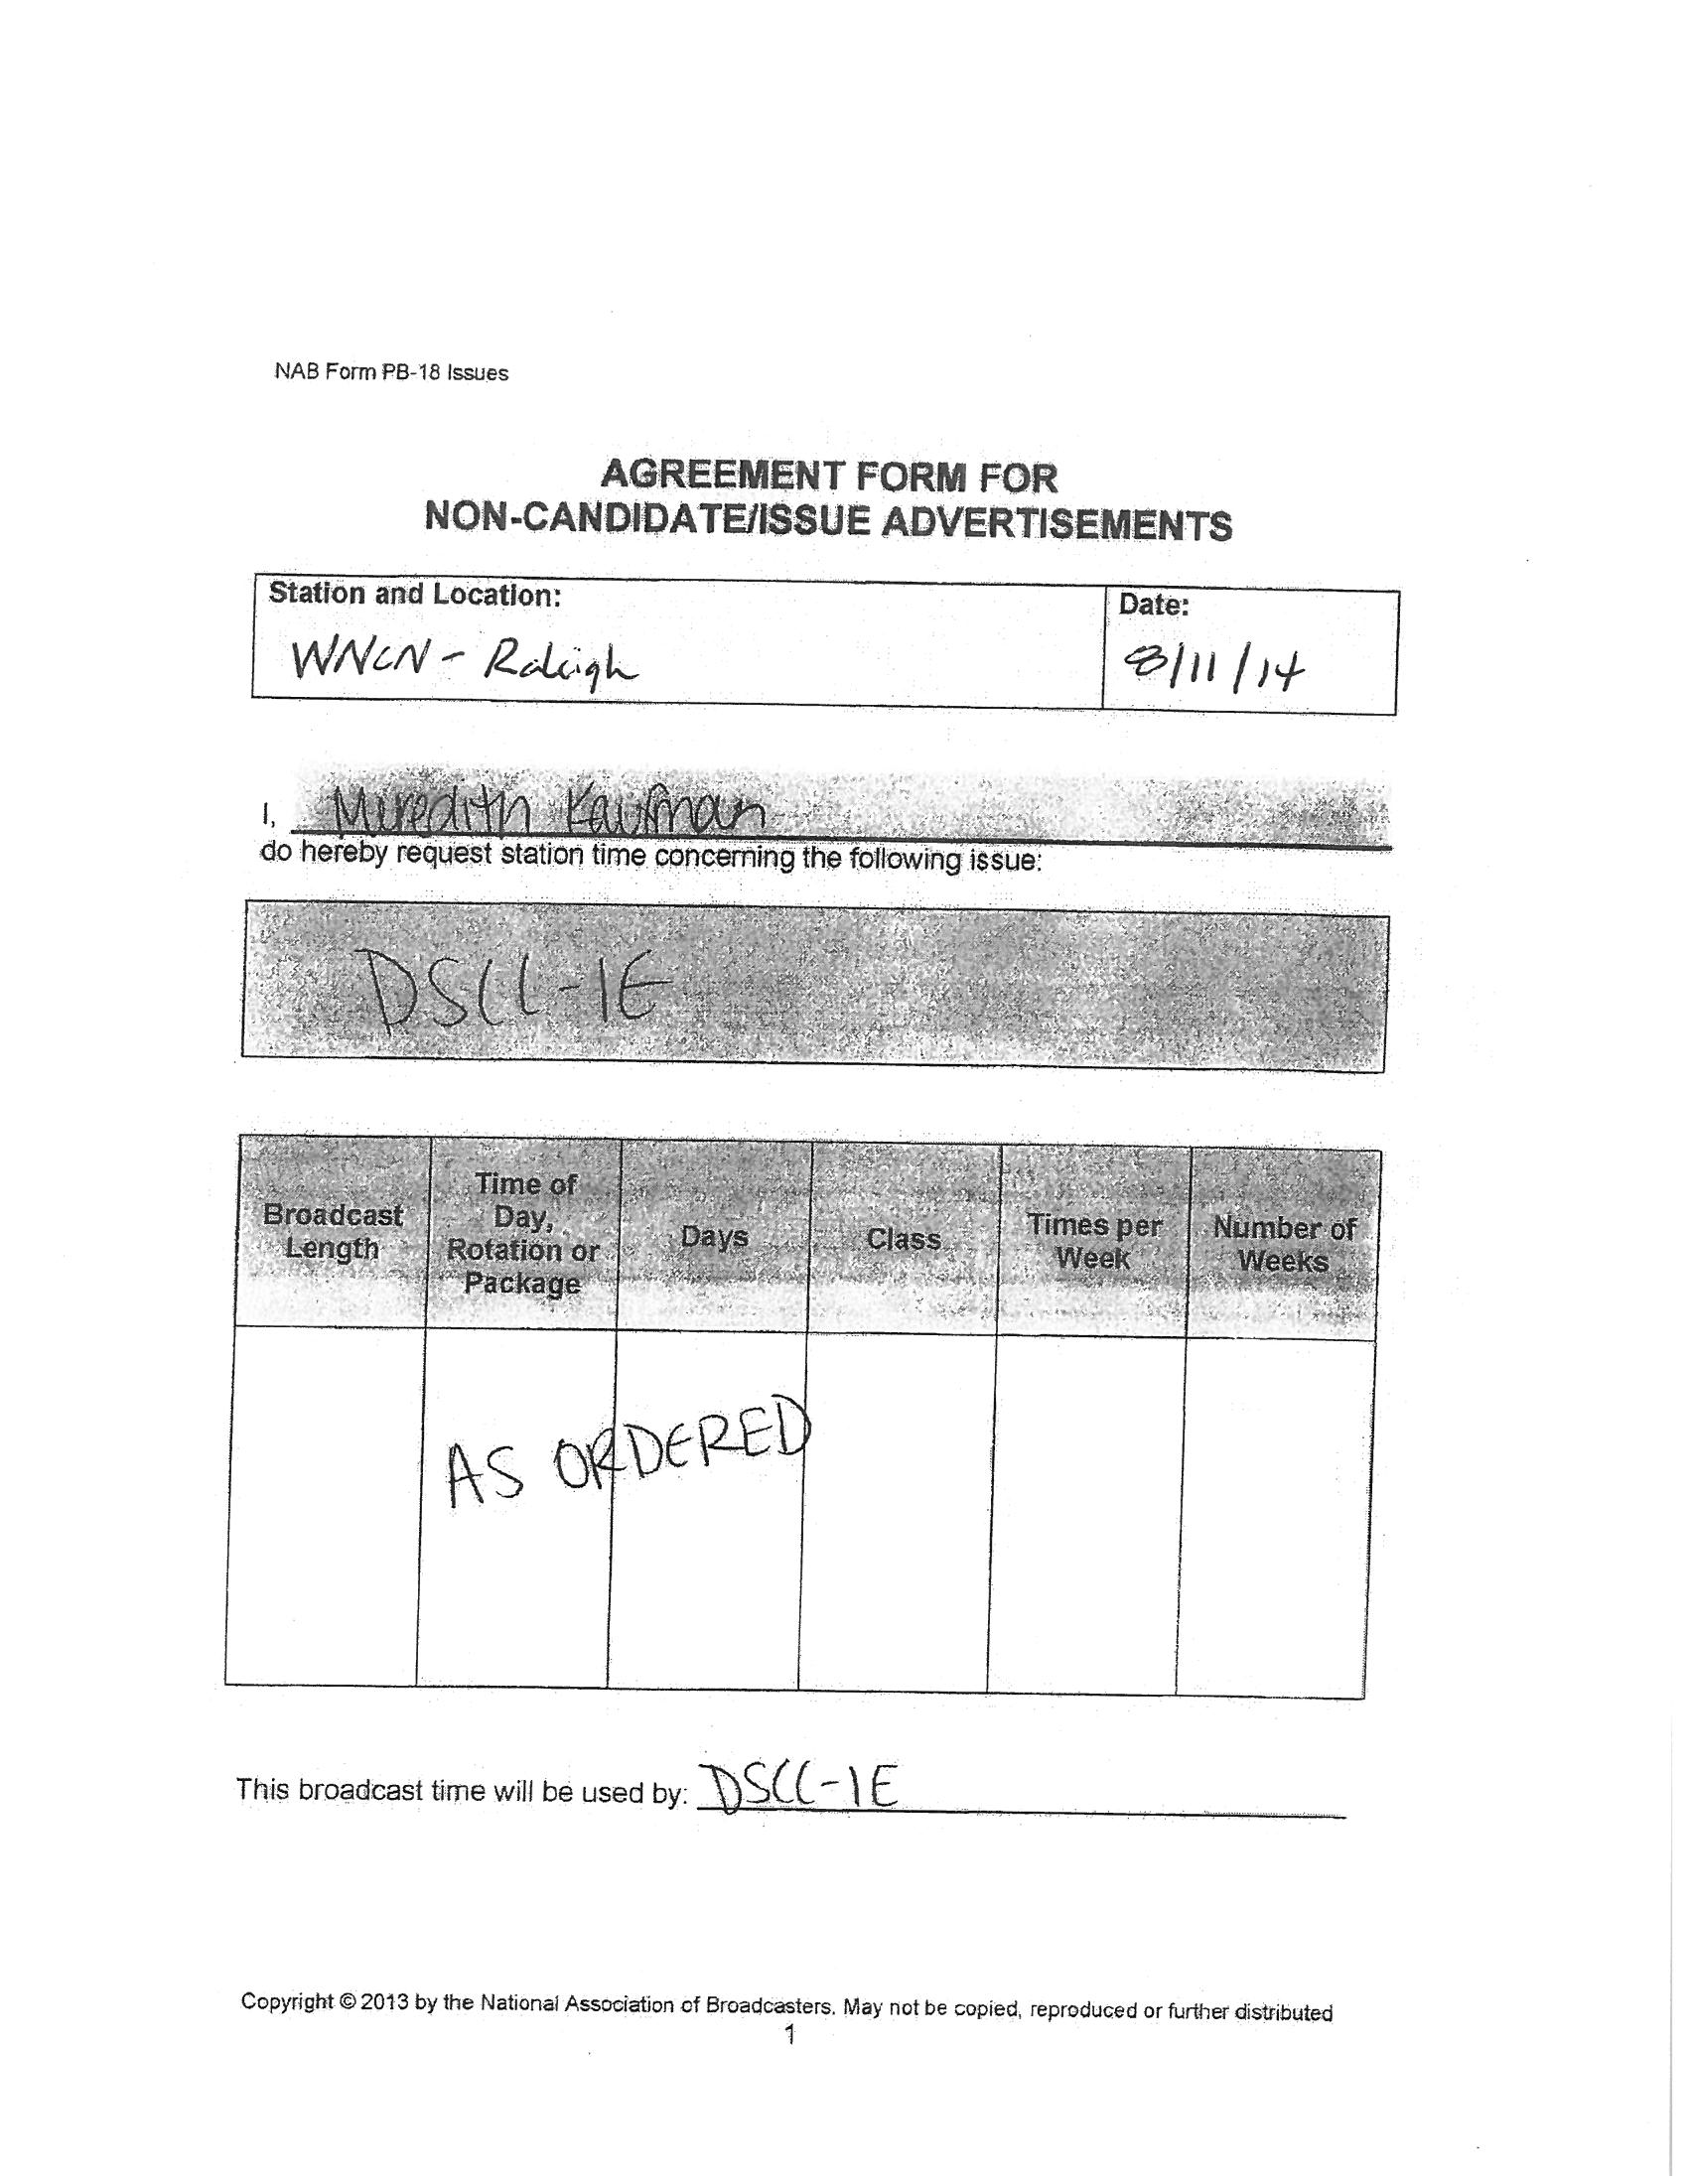 NAB Form PB-18 Issues
AGREEMENT FORM FOR
NON-CANDIDATE/ISSUE ADVERTISEMENTS
Station and Location:
Date:
WNCN - Raleigh
8/11/14
I, Meredith Kaufman
do hereby request station time concerning the following issue:
DSCC-IE
Broadcast Length
Time of Day, Rotation or Package
Days
Class
Times per Week
Number of Weeks
AS ORDERED
This broadcast time will be used by: DSCC-IE
Copyright © 2013 by the National Association of Broadcasters. May not be copied, reproduced or further distributed
1